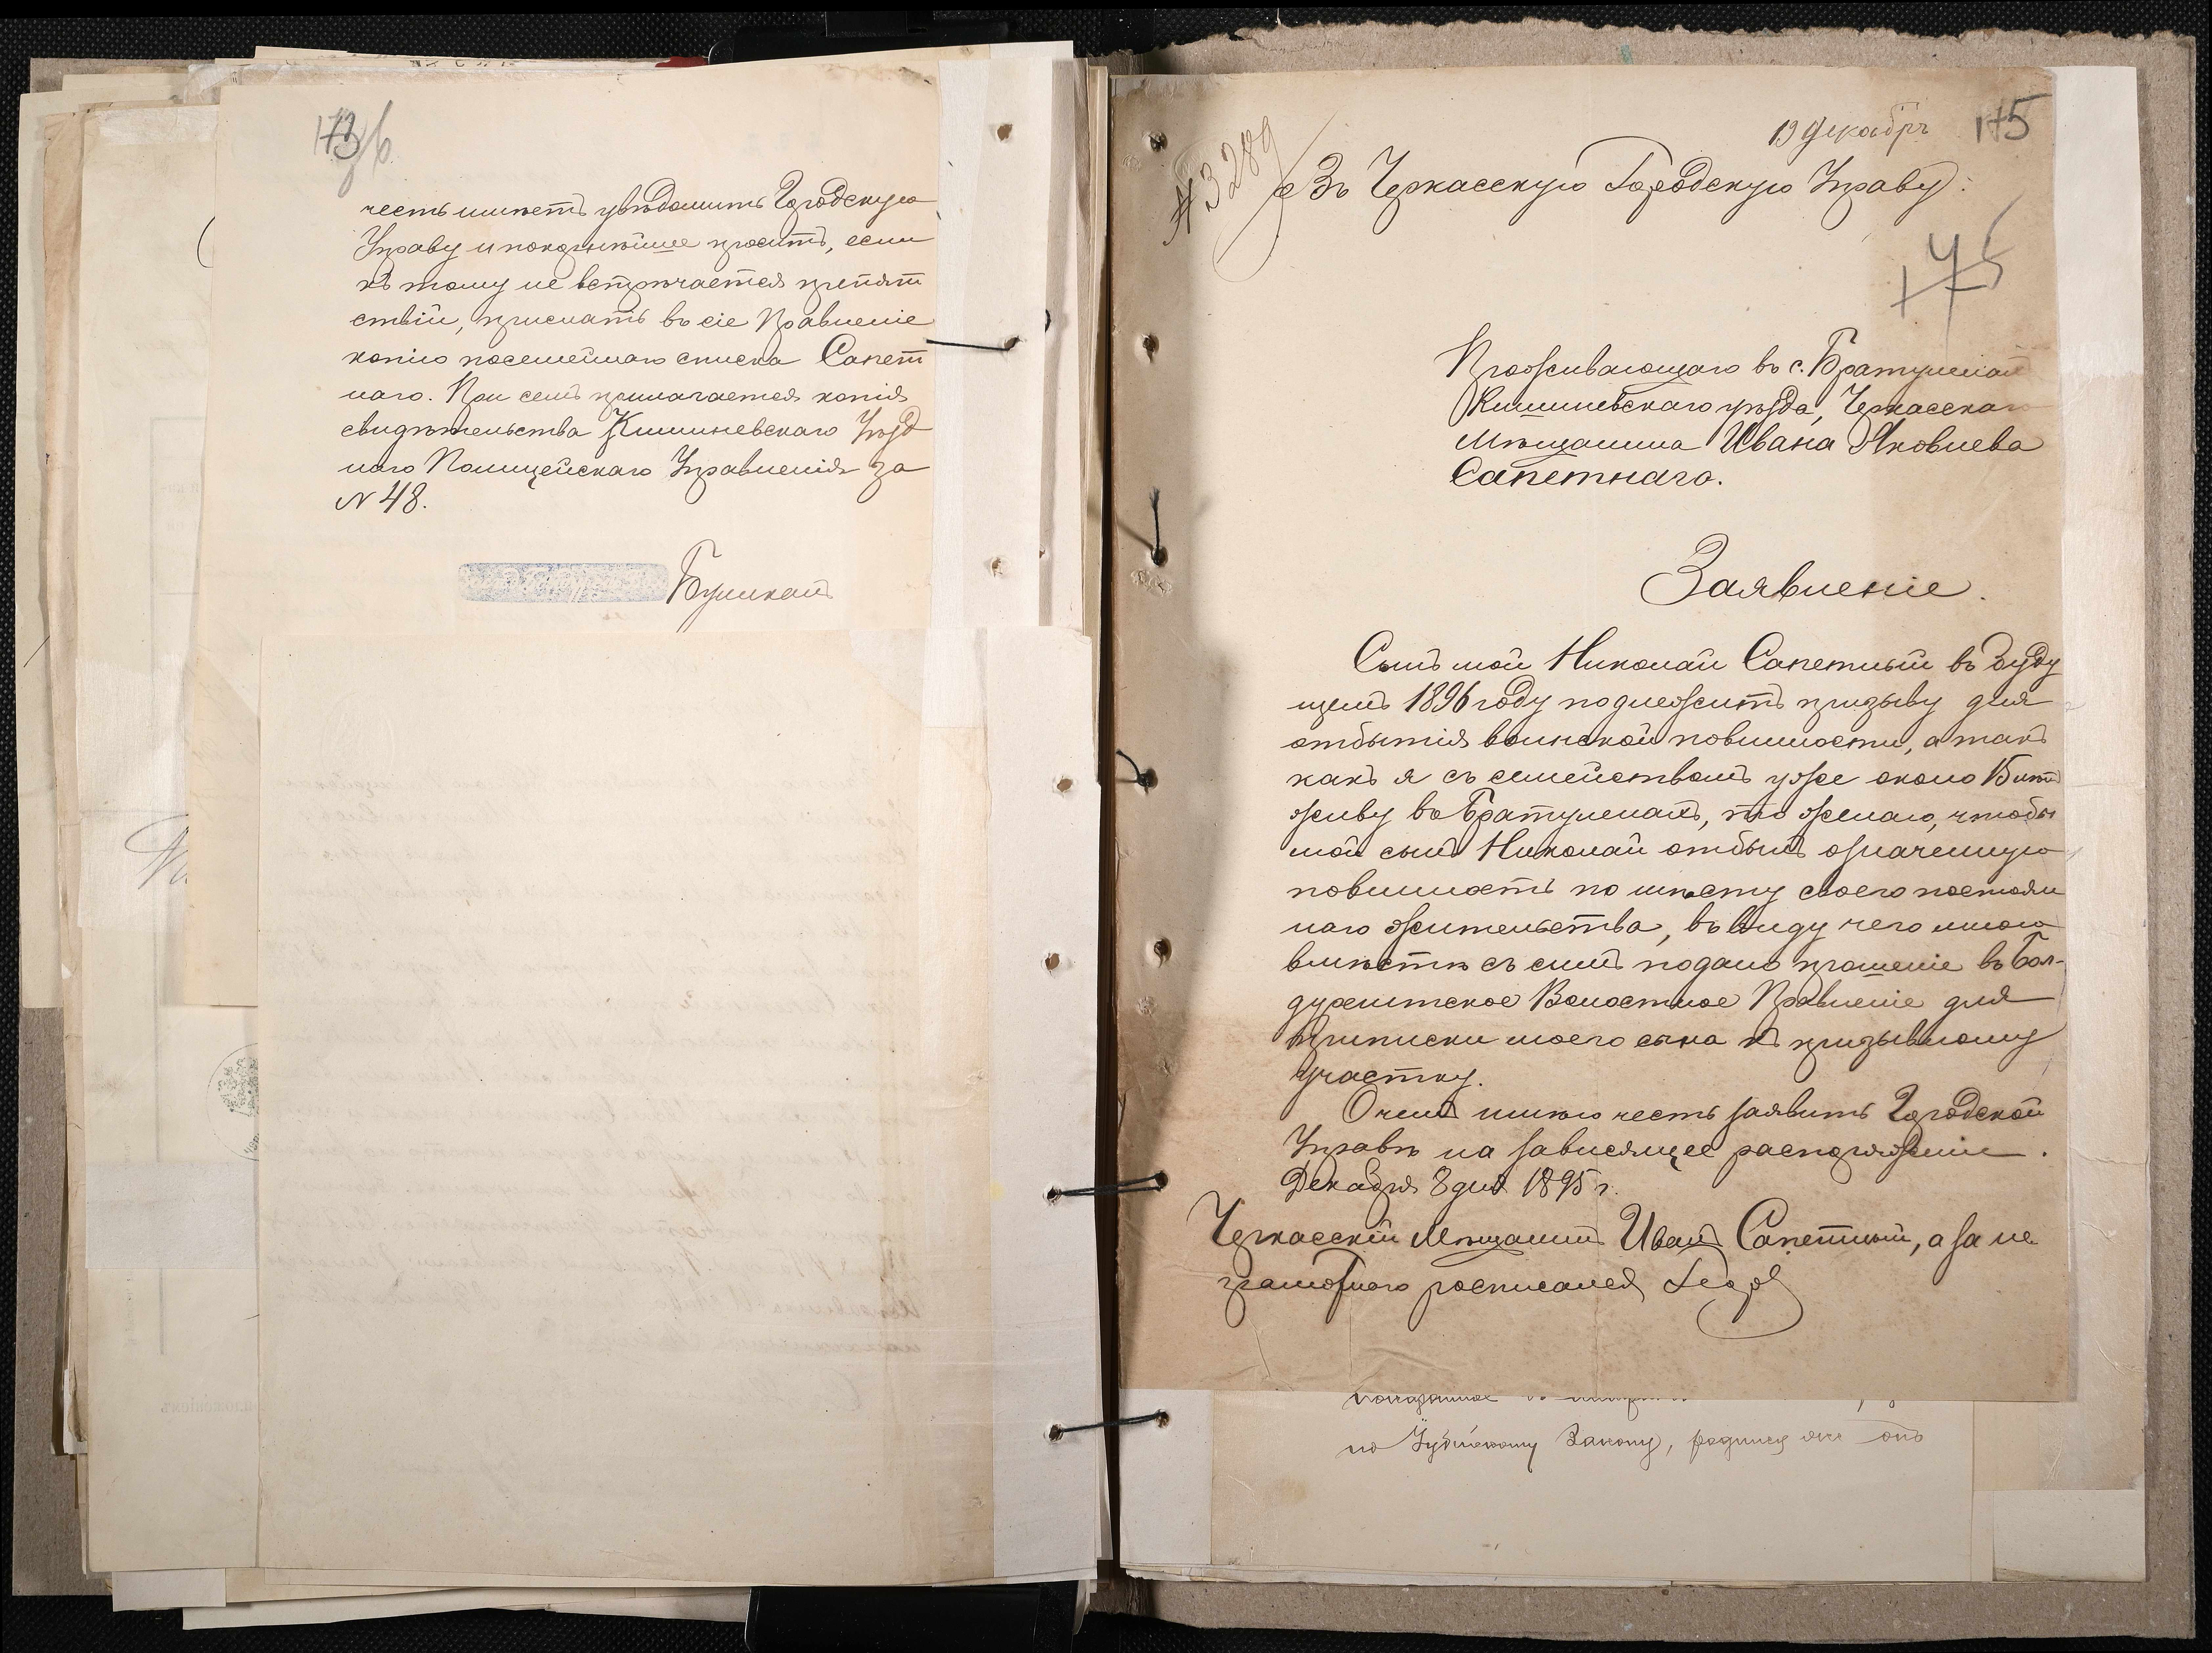 173 об
честь имѣетъ увѣдомить Городскую
Управу и покорнѣйше проситъ, если
къ тому не встрѣчается препят
ствій, прислать въ сіе Правленіе
копію посемейнаго списка Сапет
наго. При семъ прилагается копія
свидѣтельства Кишиневскаго Уѣзд
наго Полицейскаго Управленія за
N 48.
19 Декабря
175
№ 3289
Въ Черкасскую Городскую Управу.
175
Проживающаго въ с. Братулянахъ
Кишиневскаго уѣзда, Черкасскаго
Мѣщанина Ивана Яковлева
Сапетнаго.
Заявленіе.
Сынъ мой Николай Сапетный въ буду
щемъ 1896 году подлежитъ призыву для
отбытія воинской повинности, а такъ
какъ я съ семействомъ уже около 15 лѣтъ
живу въ Братуленахъ, то желаю, чтобы
мой сынъ Николай отбылъ означенную
повинность по мѣсту своего постоян
наго жительства, въ виду чего мною
вмѣстѣ съ симъ подано прошеніе въ Бол-
дурештское Волостное Правленіе для
приписки моего сына къ призывному
участку.
О чемъ имѣю честь заявить Городской
Управѣ на зависящее распоряженіе.
Декабря 8 дня 1895 г.
Черкасскій Мѣщанинъ Иванъ Сапетный, а за не
грамотнаго росписался
по закону, онъ